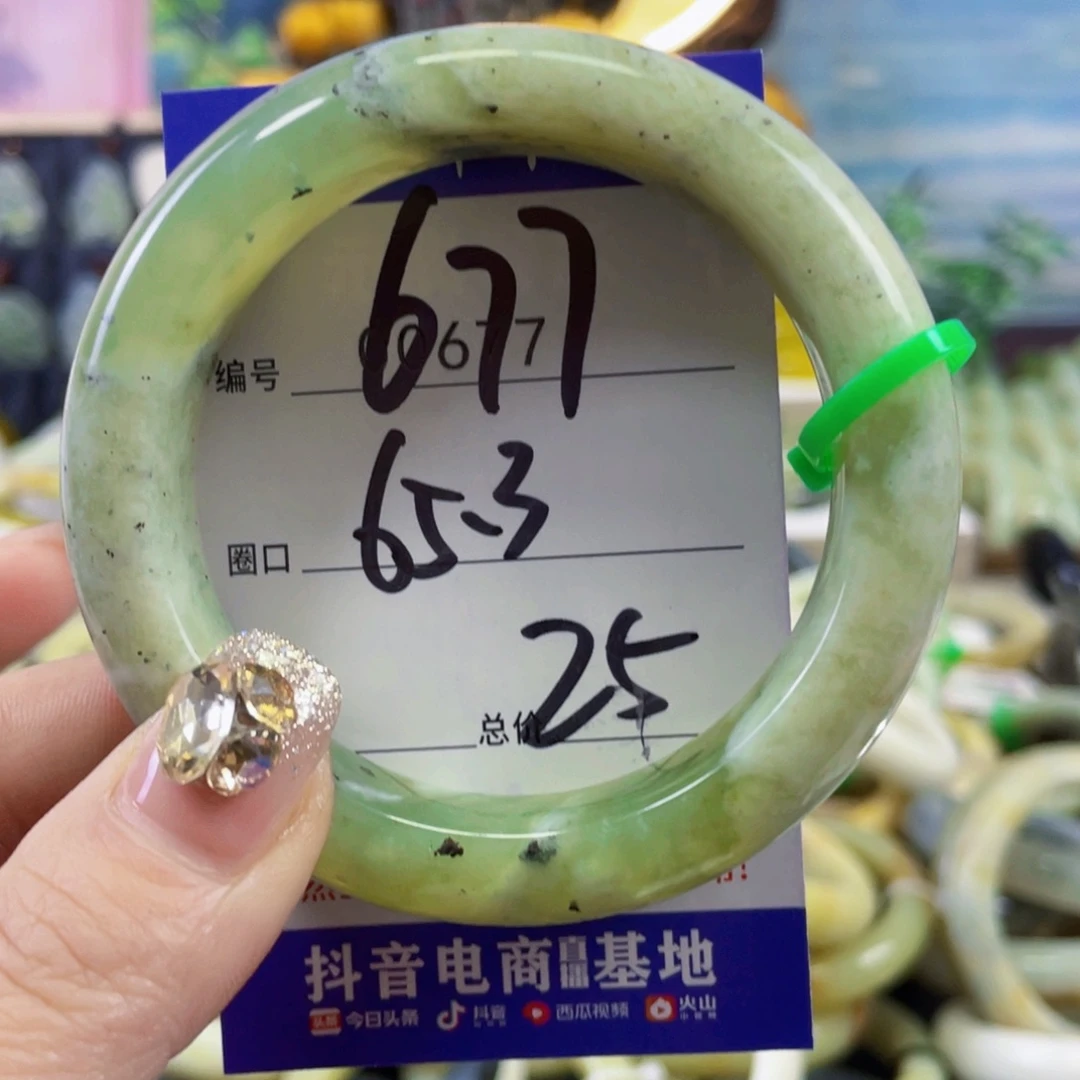 677
编号 00677
圈口 65.3
总价 25
抖音电商直播基地
头条 今日头条 抖音 西瓜视频 火山